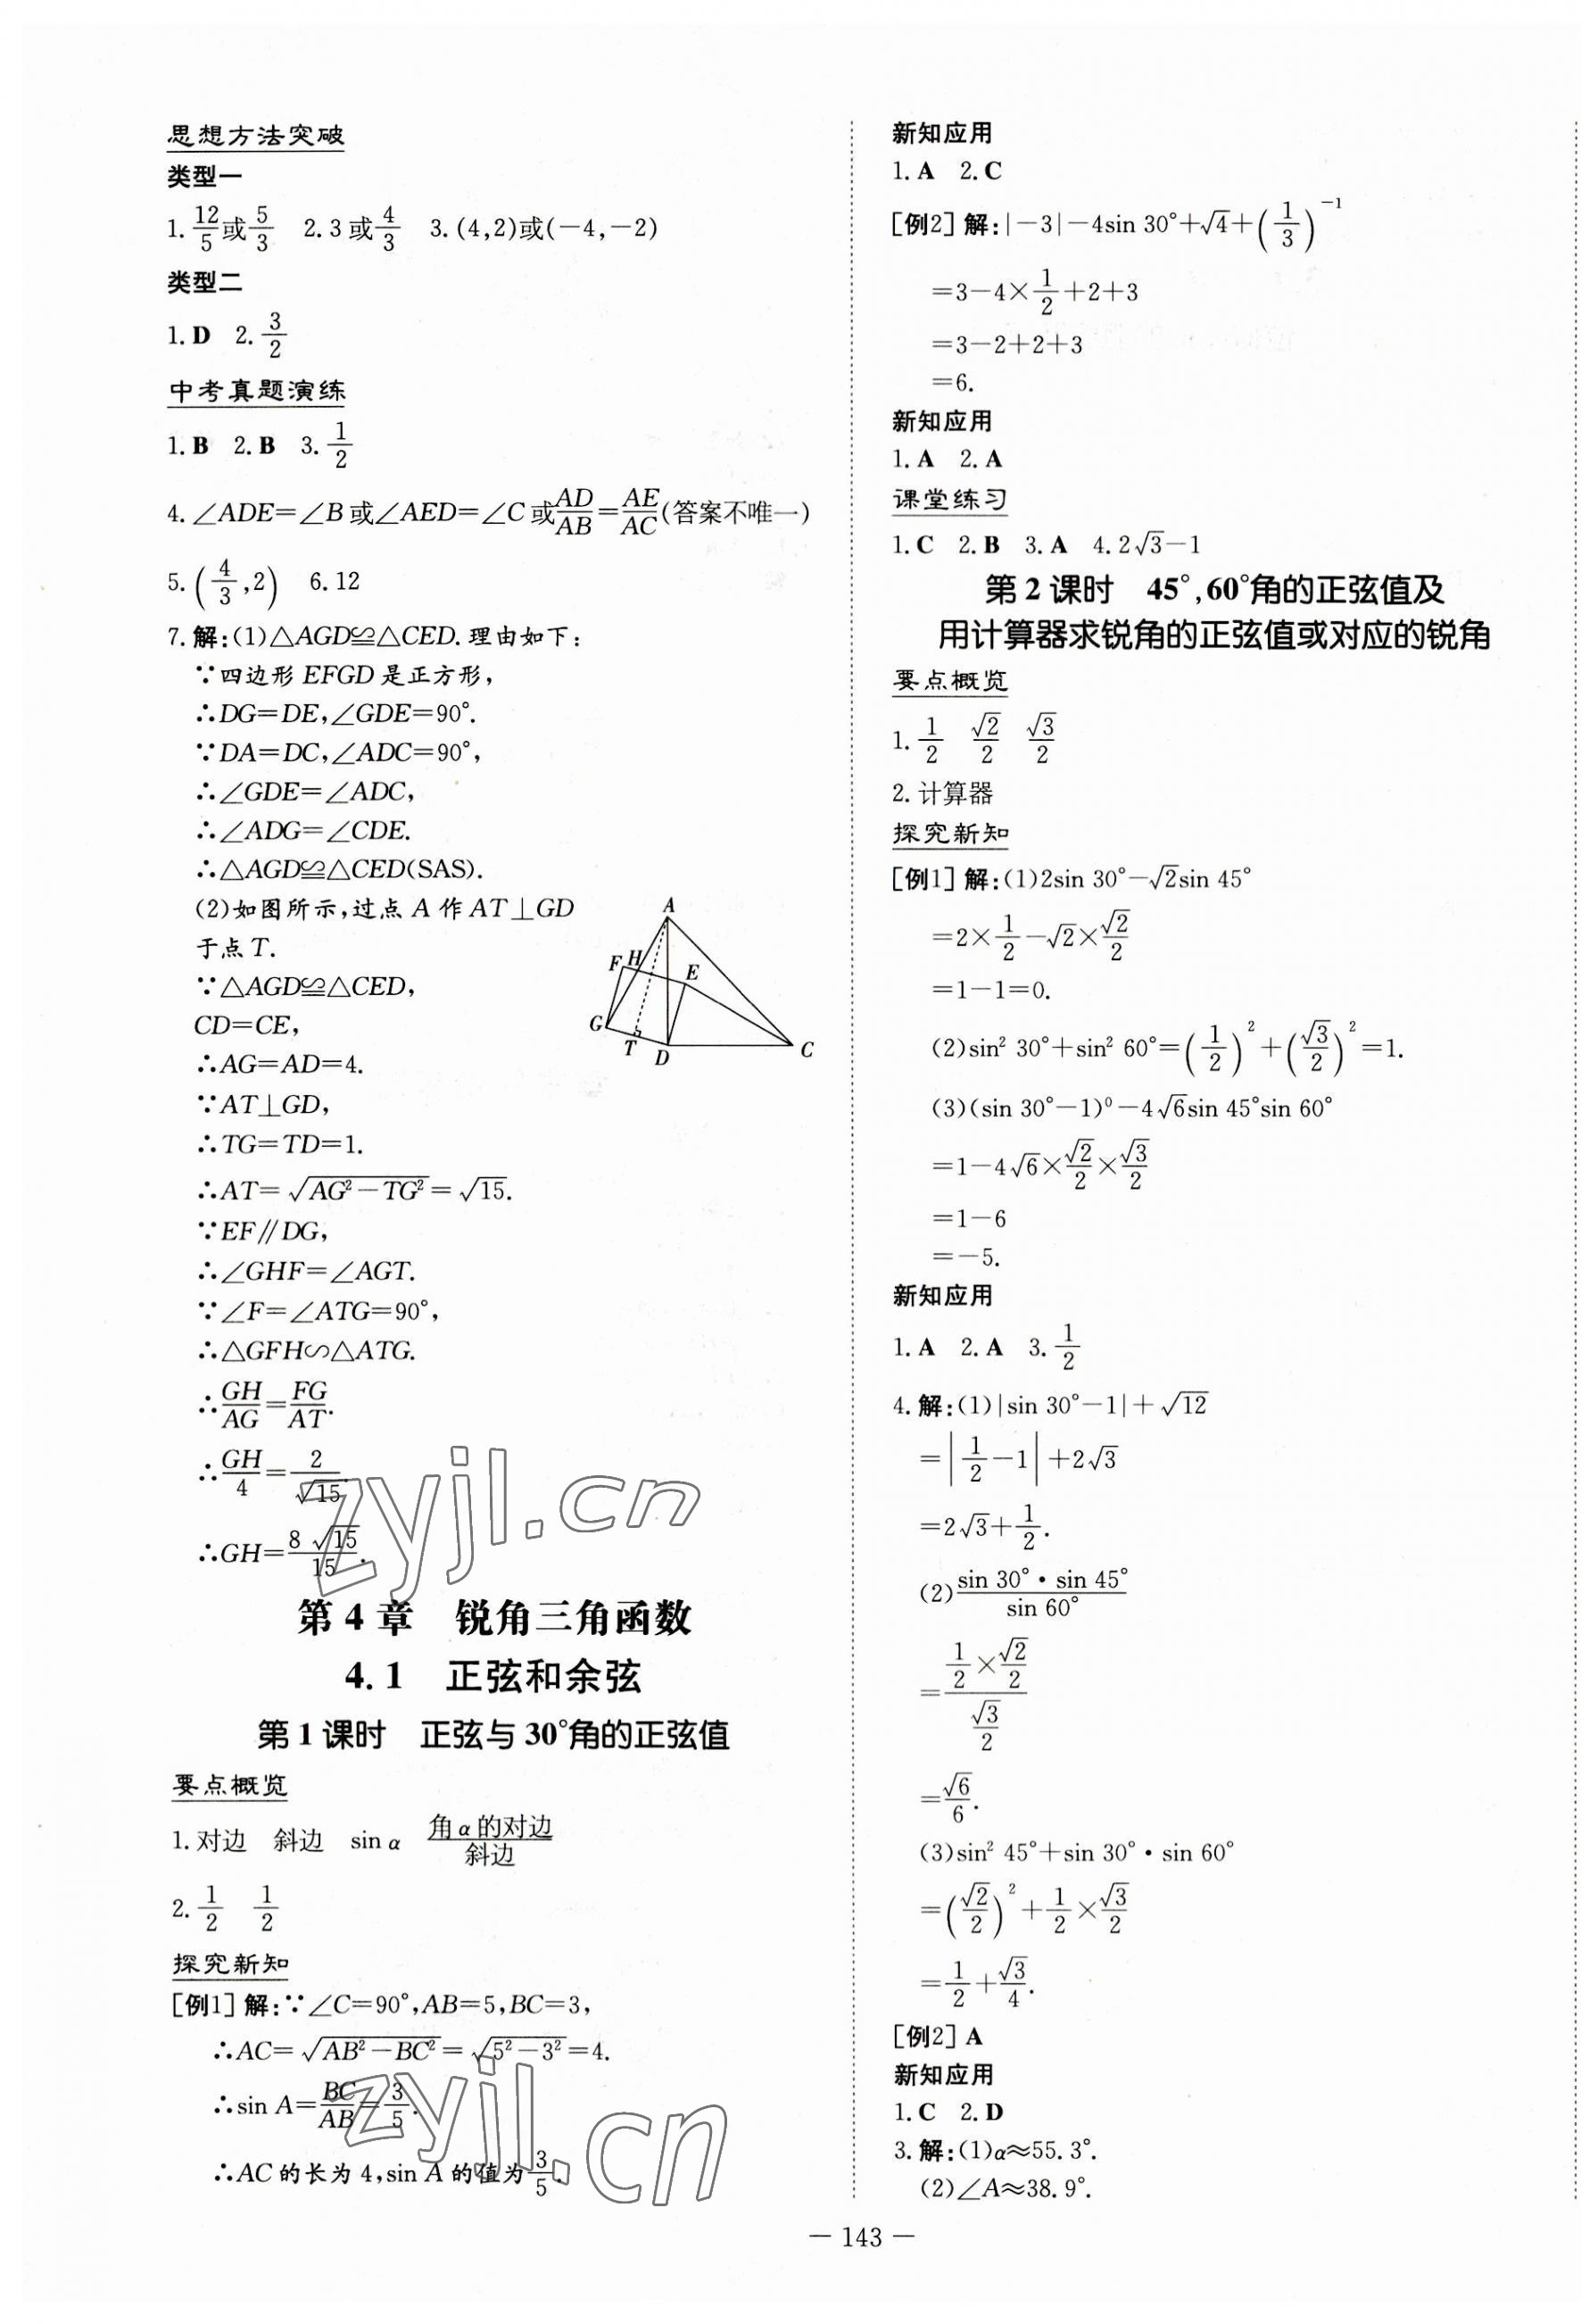 思想方法突破
类型一
1. 12/5或5/3 2. 3或4/3 3. (4,2)或(−4,−2)
类型二
1. D 2. 3/2
中考真题演练
1. B 2. B 3. 1/2
4. ∠ADE=∠B或∠AED=∠C或AD/AB=AE/AC(答案不唯一)
5. (4/3,2) 6. 12
7. 解:(1)△AGD≌△CED.理由如下:
∵四边形EFGD是正方形,
∴DG=DE,∠GDE=90°.
∵DA=DC,∠ADC=90°,
∴∠GDE=∠ADC,
∴∠ADG=∠CDE.
∴△AGD≌△CED(SAS).
(2)如图所示,过点A作AT⊥GD
于点T.
∵△AGD≌△CED,
CD=CE,
∴AG=AD=4.
∵AT⊥GD,
∴TG=TD=1.
∴AT=√(AG²−TG²)=√15.
∵EF∥DG,
∴∠GHF=∠AGT.
∵∠F=∠ATG=90°,
∴△GFH∽△ATG.
∴GH/AG=FG/AT.
∴GH/4=2/√15.
∴GH=8√15/15.
A
F H E
G T D C
第4章 锐角三角函数
4.1 正弦和余弦
第1课时 正弦与30°角的正弦值
要点概览
1. 对边 斜边 sin α 角α的对边/斜边
2. 1/2 1/2
探究新知
[例1] 解:∵∠C=90°,AB=5,BC=3,
∴AC=√(AB²−BC²)=√(5²−3²)=4.
∴sin A=BC/AB=3/5.
∴AC的长为4,sin A的值为3/5.
新知应用
1. A 2. C
[例2] 解:|−3|−4sin 30°+√4+(1/3)⁻¹
=3−4×1/2+2+3
=3−2+2+3
=6.
新知应用
1. A 2. A
课堂练习
1. C 2. B 3. A 4. 2√3−1
第2课时 45°,60°角的正弦值及
用计算器求锐角的正弦值或对应的锐角
要点概览
1. 1/2 √2/2 √3/2
2. 计算器
探究新知
[例1] 解:(1)2sin 30°−√2sin 45°
=2×1/2−√2×√2/2
=1−1=0.
(2)sin² 30°+sin² 60°=(1/2)²+(√3/2)²=1.
(3)(sin 30°−1)⁰−4√6sin 45°sin 60°
=1−4√6×√2/2×√3/2
=1−6
=−5.
新知应用
1. A 2. A 3. 1/2
4. 解:(1)|sin 30°−1|+√12
=|1/2−1|+2√3
=2√3+1/2.
(2)(sin 30°·sin 45°)/(sin 60°)
=(1/2×√2/2)/(√3/2)
=√6/6.
(3)sin² 45°+sin 30°·sin 60°
=(√2/2)²+1/2×√3/2
=1/2+√3/4.
[例2] A
新知应用
1. C 2. D
3. 解:(1)α≈55.3°.
(2)∠A≈38.9°.
— 143 —
zyjl.cn
zyjl.cn